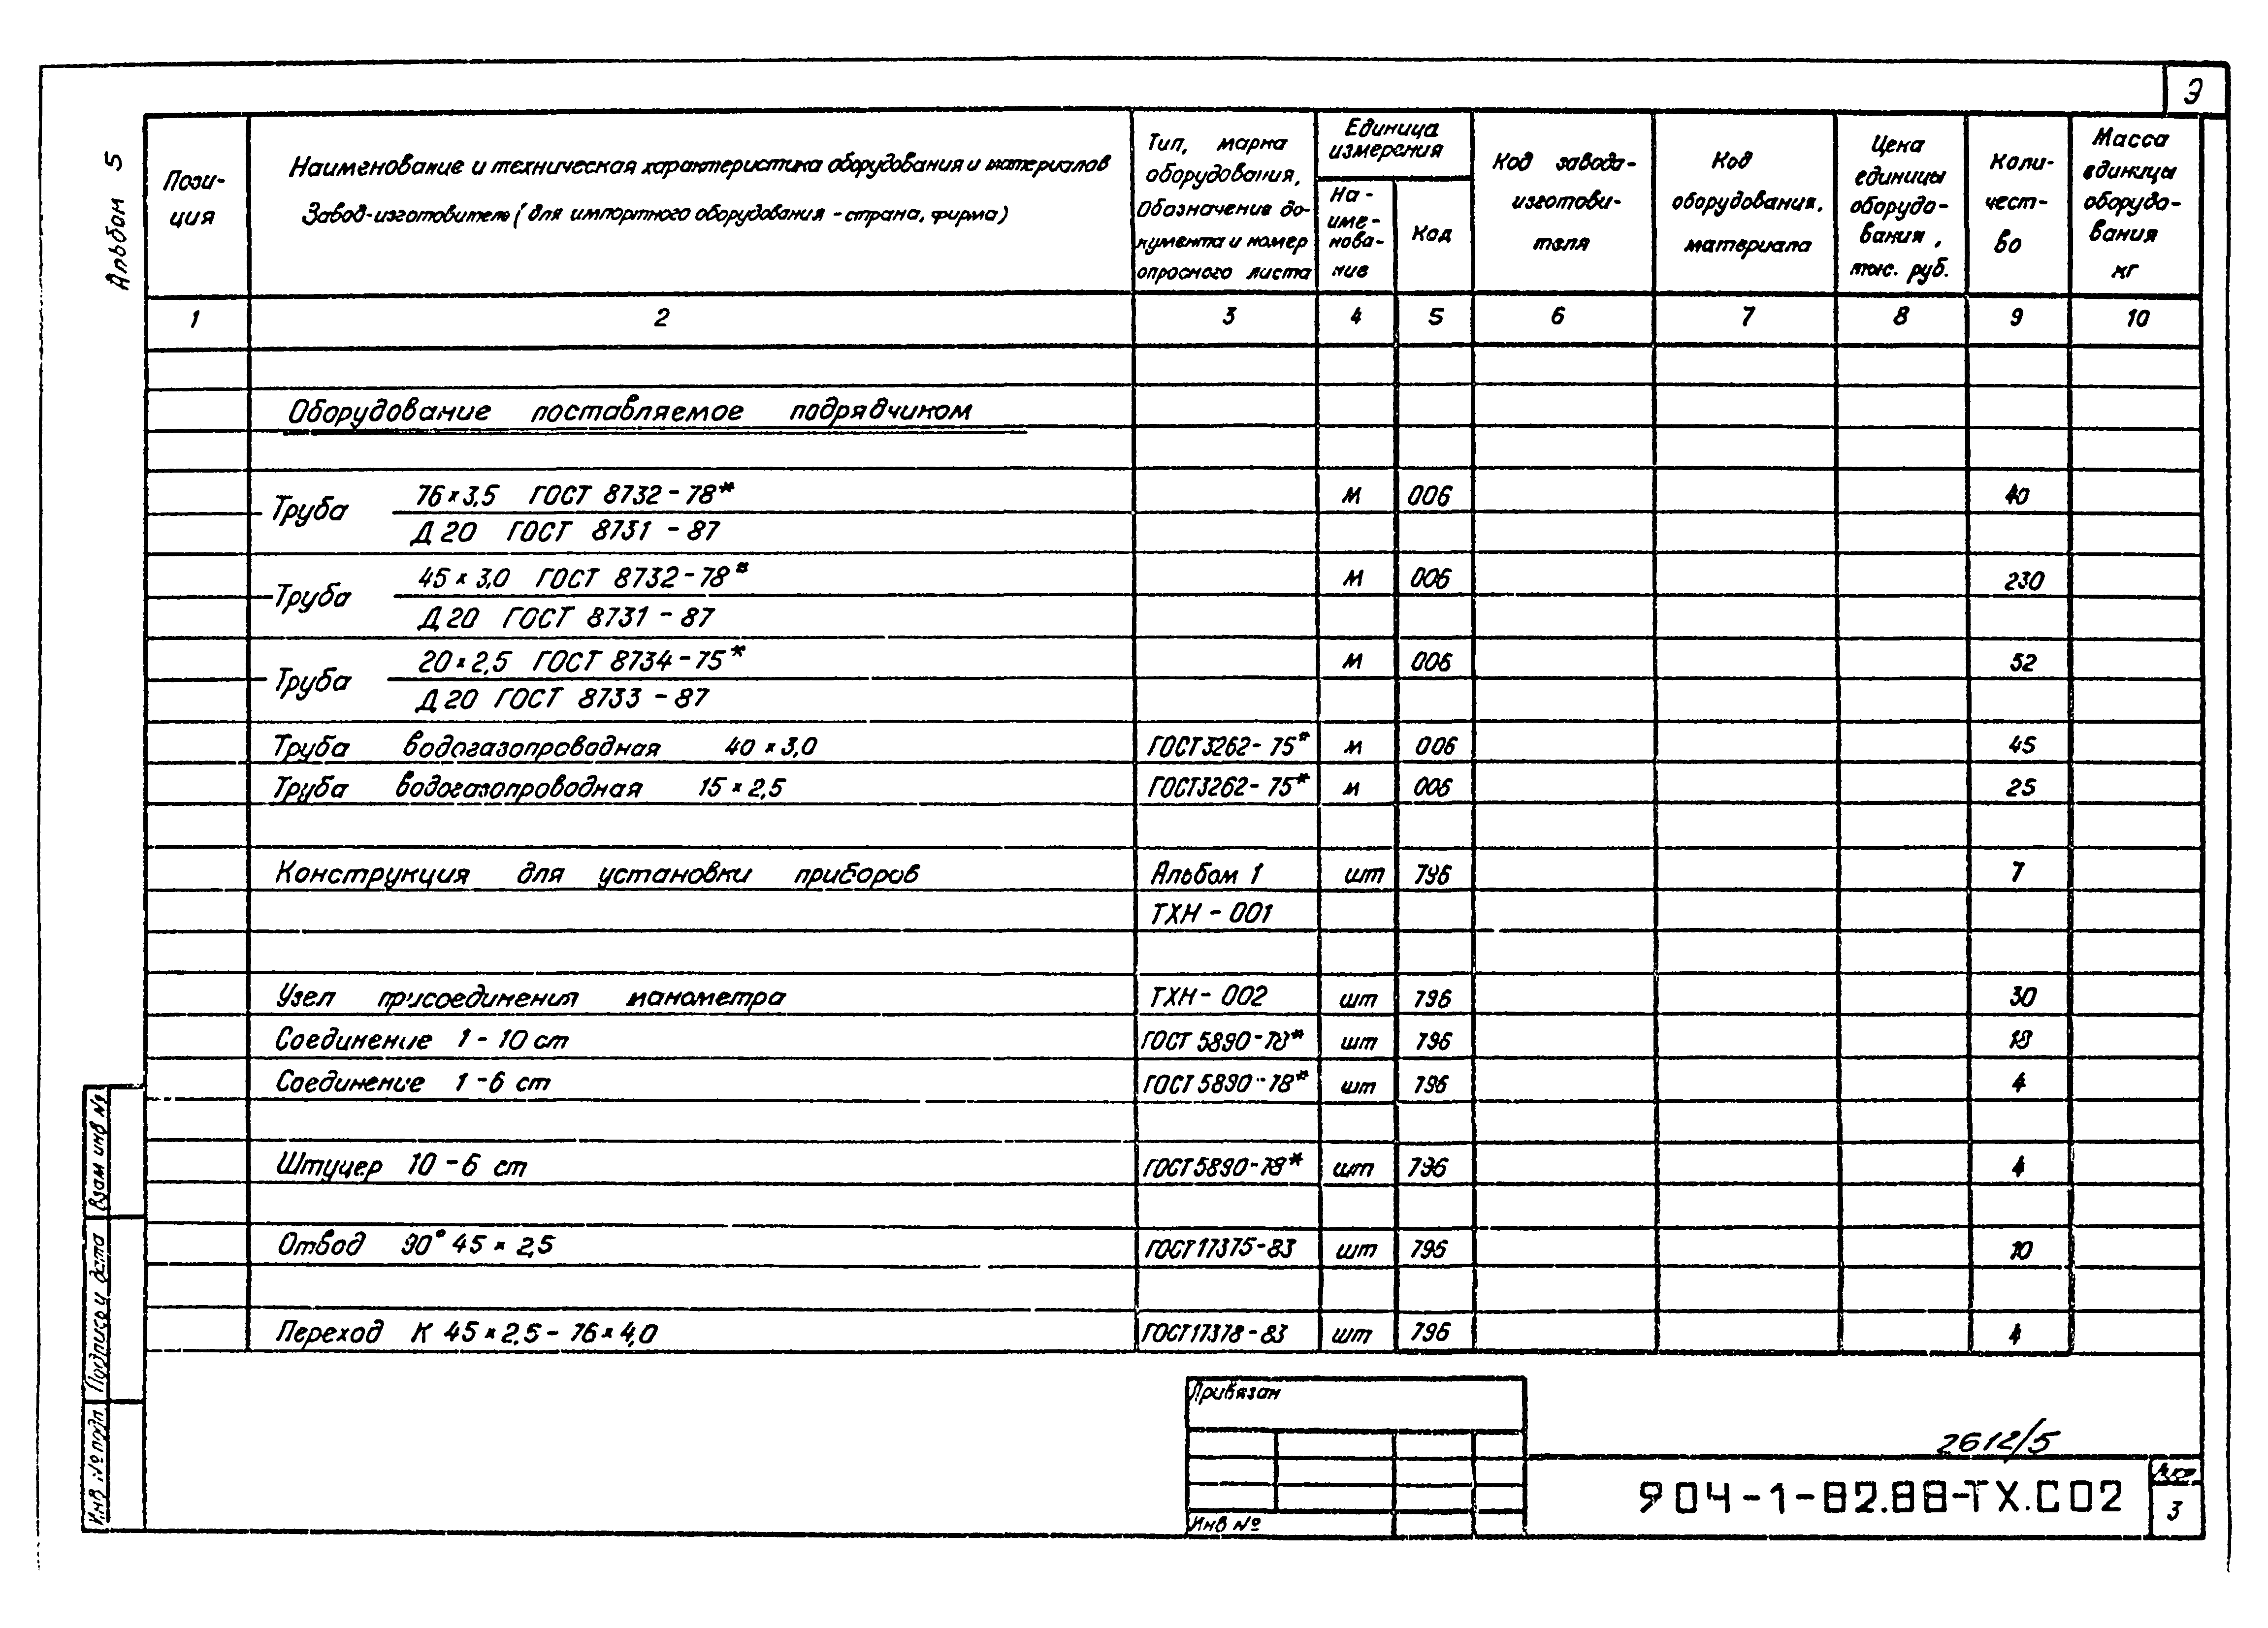 Э
Альбом 5
Пози-
ция
Наименование и техническая характеристика оборудования и материалов
Завод-изготовитель (для импортного оборудования - страна, фирма)
Тип, марка
оборудования,
Обозначение до-
кумента и номер
опросного листа
Единица
измерения
На-
име-
нова-
ние
Код
Код завода-
изготови-
теля
Код
оборудования,
материала
Цена
единицы
оборудо-
вания,
тыс. руб.
Коли-
чест-
во
Масса
единицы
оборудо-
вания
кг
1 2 3 4 5 6 7 8 9 10
Оборудование поставляемое подрядчиком
76×3,5 ГОСТ 8732-78* м 006 40
Труба
Д20 ГОСТ 8731-87
45×3,0 ГОСТ 8732-78* м 006 230
Труба
Д20 ГОСТ 8731-87
20×2,5 ГОСТ 8734-75* м 006 52
Труба
Д20 ГОСТ 8733-87
Труба водогазопроводная 40×3,0 ГОСТ3262-75* м 006 45
Труба водогазопроводная 15×2,5 ГОСТ3262-75* м 006 25
Конструкция для установки приборов Альбом 1 шт 796 7
ТХН-001
Узел присоединения манометра ТХН-002 шт 796 30
Соединение 1-10 ст ГОСТ 5890-78* шт 796 18
Соединение 1-6 ст ГОСТ 5890-78* шт 796 4
Штуцер 10-6 ст ГОСТ 5890-78* шт 796 4
Отвод 90° 45×2,5 ГОСТ 17375-83 шт 796 10
Переход К 45×2,5-76×4,0 ГОСТ 17378-83 шт 796 4
Взам инв №
Подпись и дата
Инв № подл
Привязан
Инв №
2612/5
904-1-82.88-ТХ.СО2
Лист
3